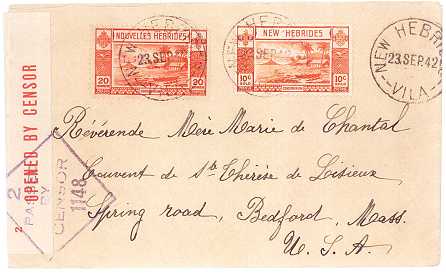 NOUVELLES HEBRIDES
20
20
NEW HEBRIDES
10c
10c
NEW HEBRI
23.SEP.42
VILA
23.SEP.42
NEW HEB
SEP.42
OPENED BY CENSOR
2
2
PAS
BY
CENSOR
1148
Révérende Mère Marie de Chantal
Couvent de Ste Thérèse de Lisieux
Spring road, Bedford, Mass.
U. S. A.